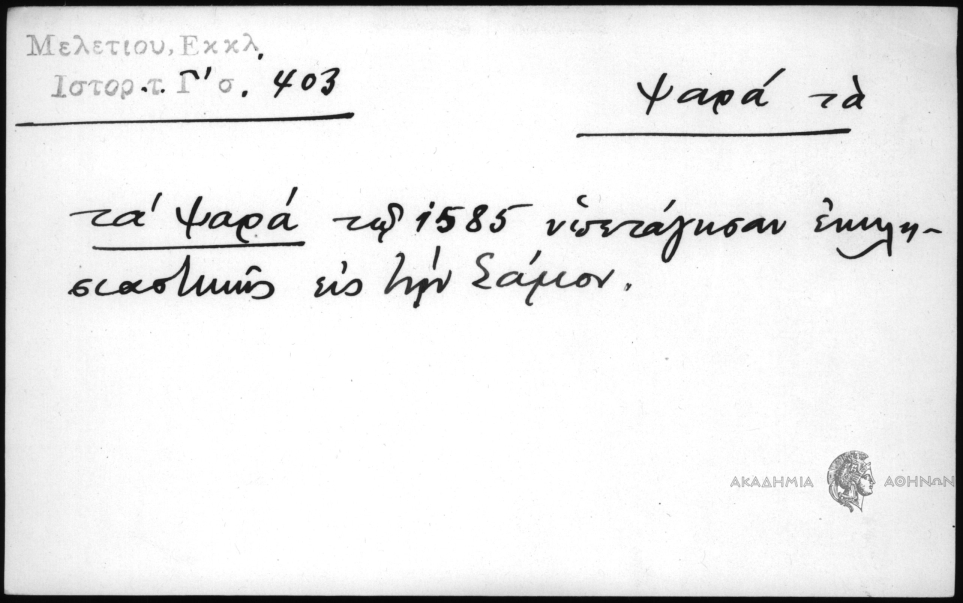 Μελετίου, Εκκλ.
Ιστορ. τ. Γ' σ. 403
Ψαρά τὰ
τά Ψαρά τῷ 1585 ὑπετάγησαν ἐκκλη-
σιαστικῶς εἰς τήν Σάμον.
ΑΚΑΔΗΜΙΑ ΑΘΗΝΩΝ